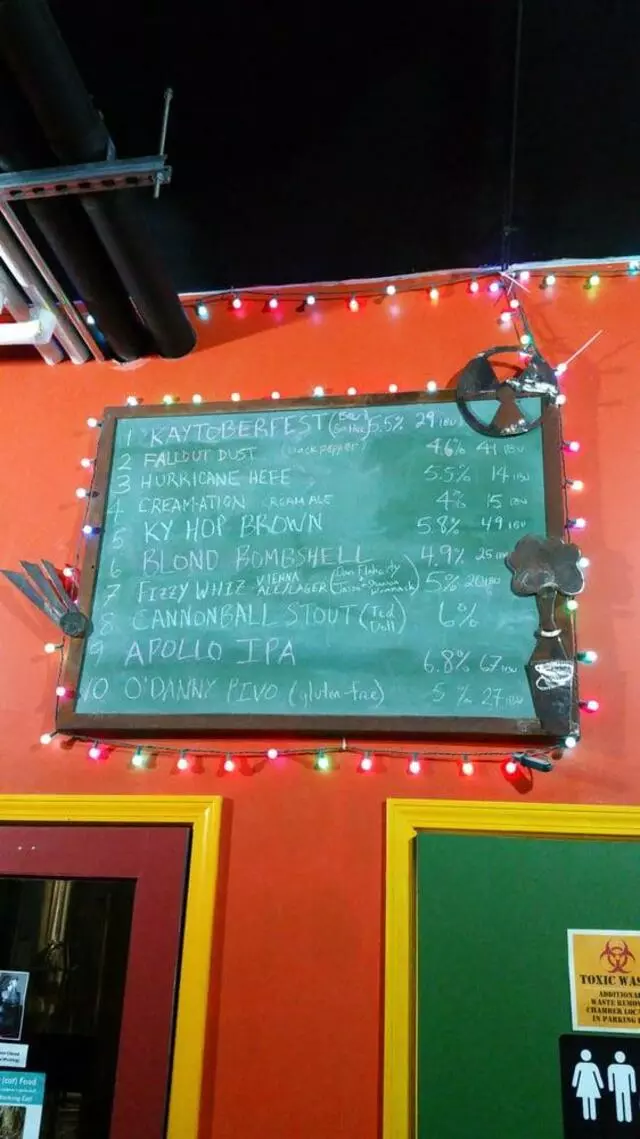 1 KAYTOBERFEST 5.5% 29 IBU
2 FALLOUT DUST (black pepper) 4.6% 41 IBU
3 HURRICANE HEFE 5.5% 14 IBU
4 CREAM-ATION CREAM ALE 4% 15 IBU
5 KY HOP BROWN 5.8% 49 IBU
6 BLOND BOMBSHELL 4.9% 25 IBU
7 FIZZY WHIZ VIENNA ALE/LAGER (Dan Flaherty + 5% 20 IBU
8 CANNONBALL STOUT (Ted Doll) 6%
9 APOLLO IPA 6.8% 67 IBU
10 O'DANNY PIVO (gluten-free) 5% 27 IBU
TOXIC WAS
ADDITIONA
WASTE REMOV
CHAMBER LOC
IN PARKING
(cat) Food